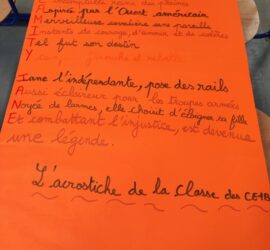 Inspiré par l'Ouest américain
Merveilleuse cavalière sans pareille
Instants de courage, d'amour et de colères
Tel fut son destin
Y
Jane l'indépendante, pose des rails
Aussi éclaireur pour les troupes armées
Noyée de larmes, elle choisit d'éloigner sa fille
Et combattant l'injustice, est devenue
une légende.
L'acrostiche de la classe des CE1B